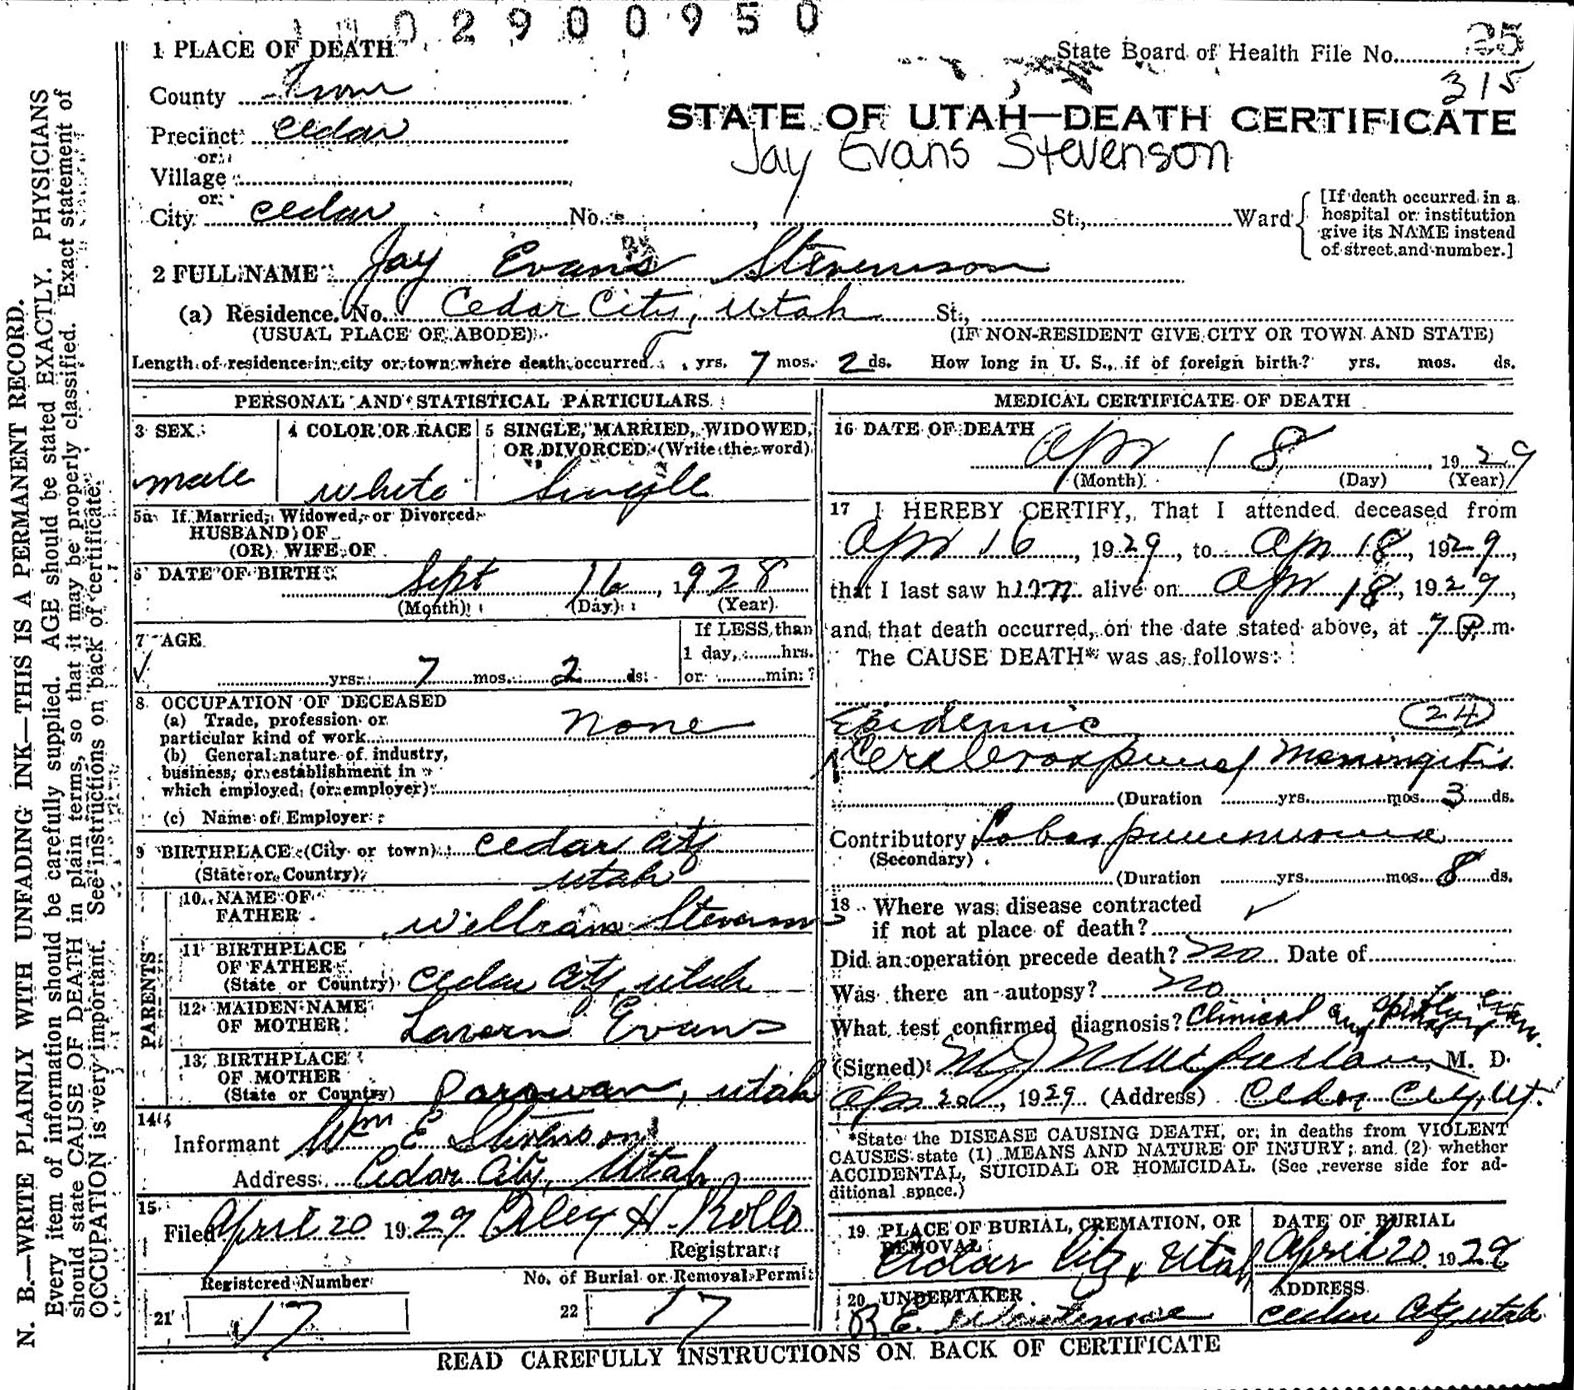 02900950
1 PLACE OF DEATH
State Board of Health File No. 35
315
County Iron
STATE OF UTAH—DEATH CERTIFICATE
Precinct Cedar
or
Jay Evans Stevenson
Village
or
City Cedar No. St., Ward
[If death occurred in a hospital or institution give its NAME instead of street and number.]
2 FULL NAME Jay Evans Stevenson
(a) Residence. No. Cedar City, Utah St.,
(USUAL PLACE OF ABODE) (IF NON-RESIDENT GIVE CITY OR TOWN AND STATE)
Length of residence in city or town where death occurred yrs. 7 mos. 2 ds. How long in U. S., if of foreign birth? yrs. mos. ds.
PERSONAL AND STATISTICAL PARTICULARS
3 SEX
male
4 COLOR OR RACE
white
5 SINGLE, MARRIED, WIDOWED, OR DIVORCED (Write the word)
Single
5a If Married, Widowed, or Divorced
HUSBAND OF
(OR) WIFE OF
6 DATE OF BIRTH Sept 16, 1928
(Month) (Day) (Year)
7 AGE
yrs. 7 mos. 2 ds.
If LESS than
1 day, hrs.
or min?
8 OCCUPATION OF DECEASED
(a) Trade, profession or
particular kind of work none
(b) General nature of industry,
business, or establishment in
which employed (or employer)
(c) Name of Employer
9 BIRTHPLACE (City or town) Cedar City
(State or Country) Utah
PARENTS
10 NAME OF
FATHER William Stevenson
11 BIRTHPLACE
OF FATHER
(State or Country) Cedar City, Utah
12 MAIDEN NAME
OF MOTHER Lavern Evans
13 BIRTHPLACE
OF MOTHER
(State or Country) Parowan, Utah
14
Informant Wm E Stevenson
Address Cedar City, Utah
15
Filed April 20 1929 H. Rollo
Registrar
Registered Number
21 17
No. of Burial or Removal Permit
22 17
MEDICAL CERTIFICATE OF DEATH
16 DATE OF DEATH
Apr 18, 1929
(Month) (Day) (Year)
17 I HEREBY CERTIFY, That I attended deceased from
Apr 16, 1929, to Apr 18, 1929,
that I last saw him alive on Apr 18, 1929,
and that death occurred, on the date stated above, at 7 P.m.
The CAUSE DEATH* was as follows:
Epidemic 24
Cerebrospinal Meningitis
(Duration yrs. mos. 3 ds.
Contributory Lobar pneumonia
(Secondary)
(Duration yrs. mos. 8 ds.
18 Where was disease contracted
if not at place of death?
Did an operation precede death? No Date of
Was there an autopsy? No
What test confirmed diagnosis? Clinical and
(Signed) M J Macfarlane, M. D.
Apr 20, 1929 (Address) Cedar City, Ut.
*State the DISEASE CAUSING DEATH, or in deaths from VIOLENT
CAUSES state (1) MEANS AND NATURE OF INJURY; and (2) whether
ACCIDENTAL, SUICIDAL OR HOMICIDAL. (See reverse side for ad-
ditional space.)
19 PLACE OF BURIAL, CREMATION, OR REMOVAL
Cedar City, Utah
DATE OF BURIAL
April 20 1929
20 UNDERTAKER
R. E.
ADDRESS
Cedar City Utah
READ CAREFULLY INSTRUCTIONS ON BACK OF CERTIFICATE
N. B.—WRITE PLAINLY WITH UNFADING INK—THIS IS A PERMANENT RECORD.
Every item of information should be carefully supplied. AGE should be stated EXACTLY. PHYSICIANS
should state CAUSE OF DEATH in plain terms, so that it may be properly classified. Exact statement of
OCCUPATION is very important. See instructions on back of certificate.